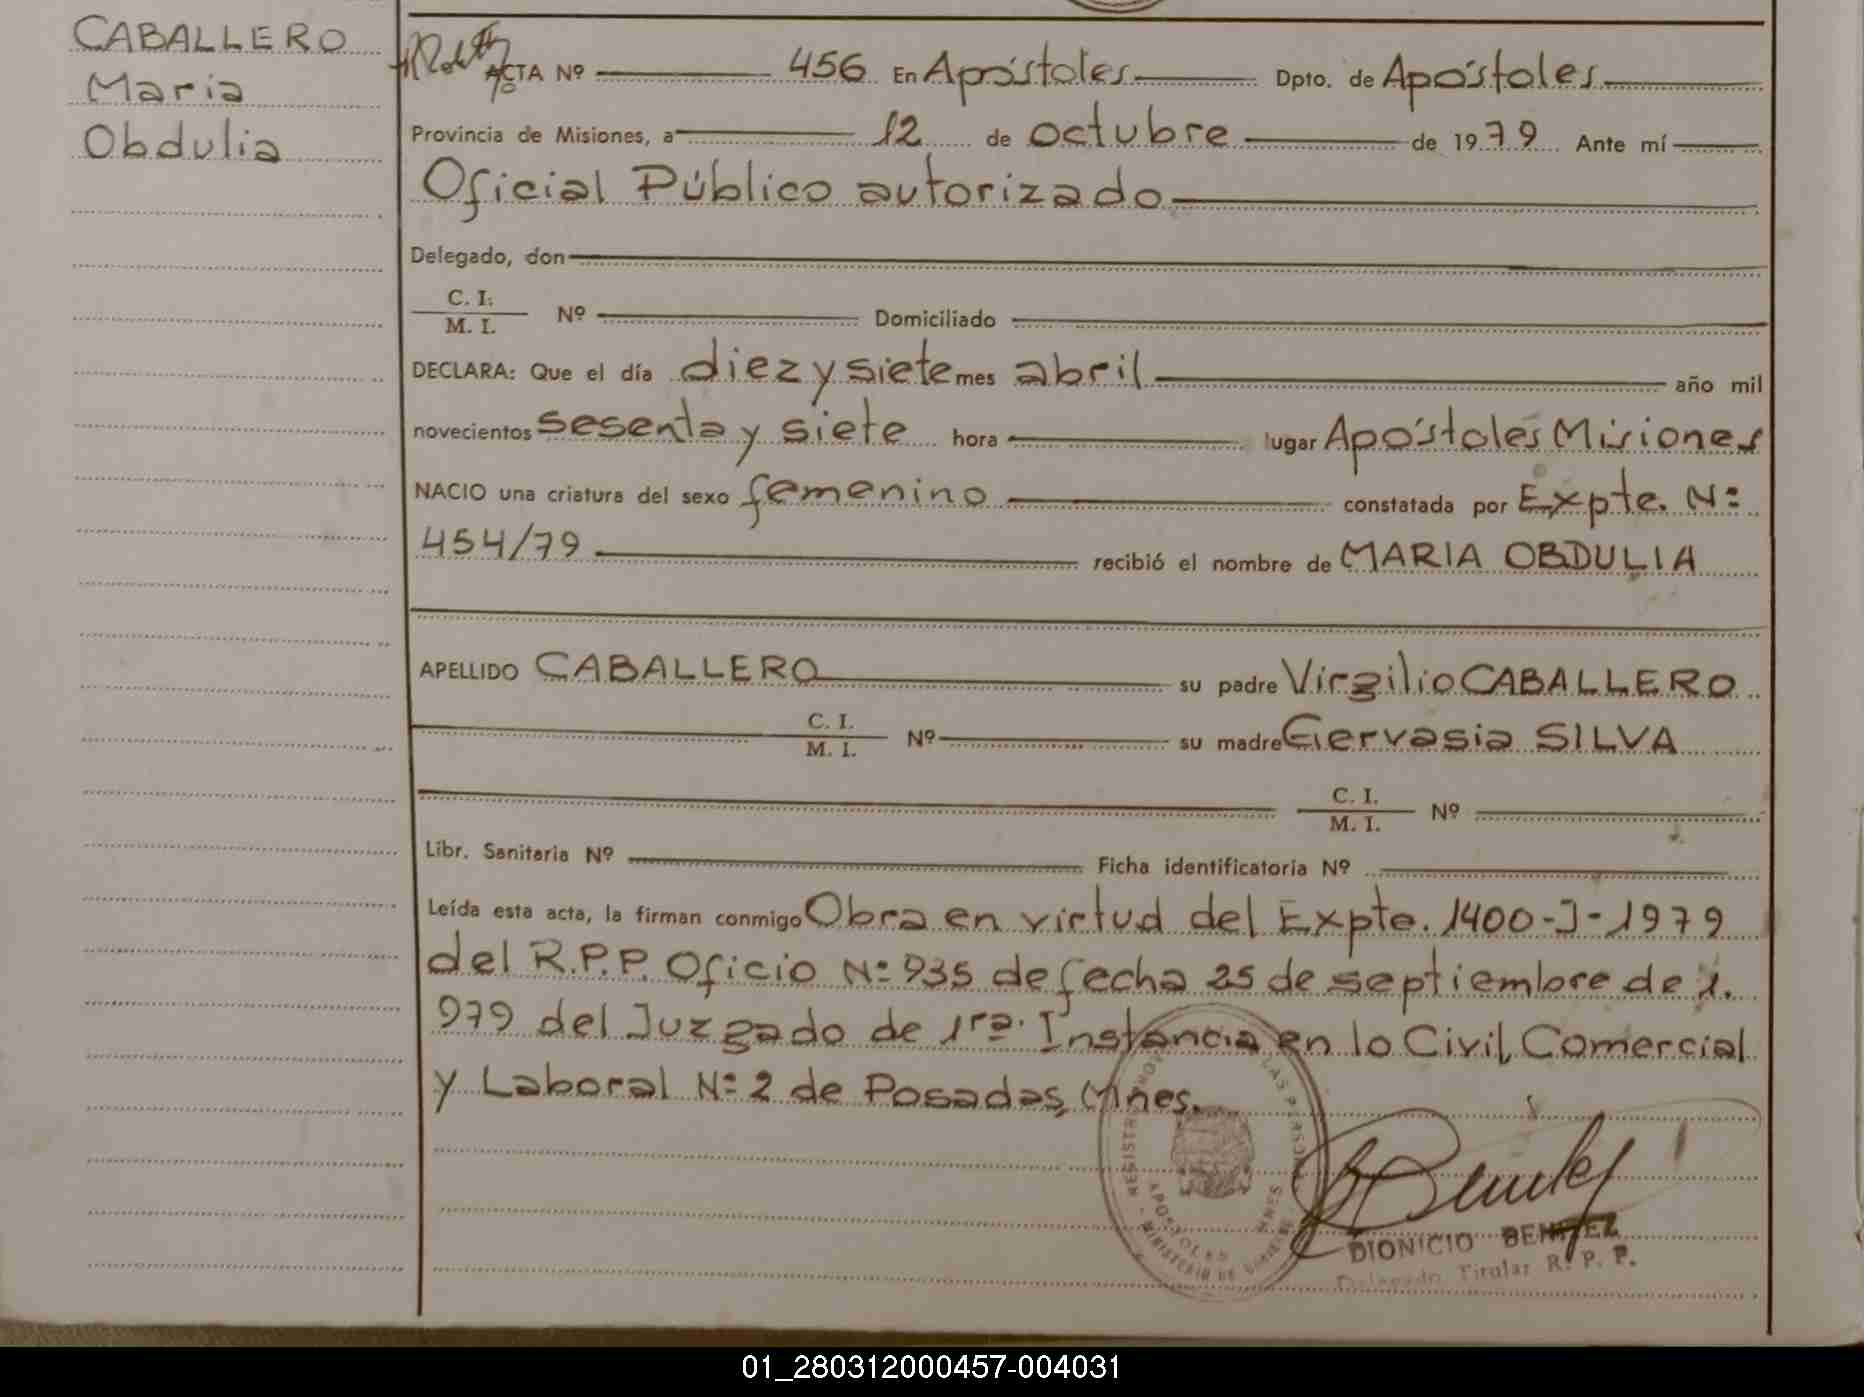 CABALLERO
Maria
Obdulia
ACTA Nº 456 En Apóstoles Dpto. de Apóstoles
Provincia de Misiones, a 12 de octubre de 1979 Ante mí
Oficial Público autorizado
Delegado, don
C. I.
M. I. Nº Domiciliado
DECLARA: Que el día diez y siete mes abril año mil
novecientos sesenta y siete hora lugar Apóstoles Misiones
NACIO una criatura del sexo femenino constatada por Expte. Nº
454/79 recibió el nombre de MARIA OBDULIA
APELLIDO CABALLERO su padre Virgilio CABALLERO
C. I.
M. I. Nº su madre Gervasia SILVA
C. I.
M. I. Nº
Libr. Sanitaria Nº Ficha identificatoria Nº
Leída esta acta, la firman conmigo Obra en virtud del Expte. 1400-J-1979
del R.P.P. Oficio Nº 935 de fecha 25 de septiembre de 1.
979 del Juzgado de 1ra. Instancia en lo Civil, Comercial
y Laboral Nº 2 de Posadas, Mnes.
APOSTOLES MNES
DIONICIO BENITEZ
Delegado Titular R. P. P.
01_280312000457-004031